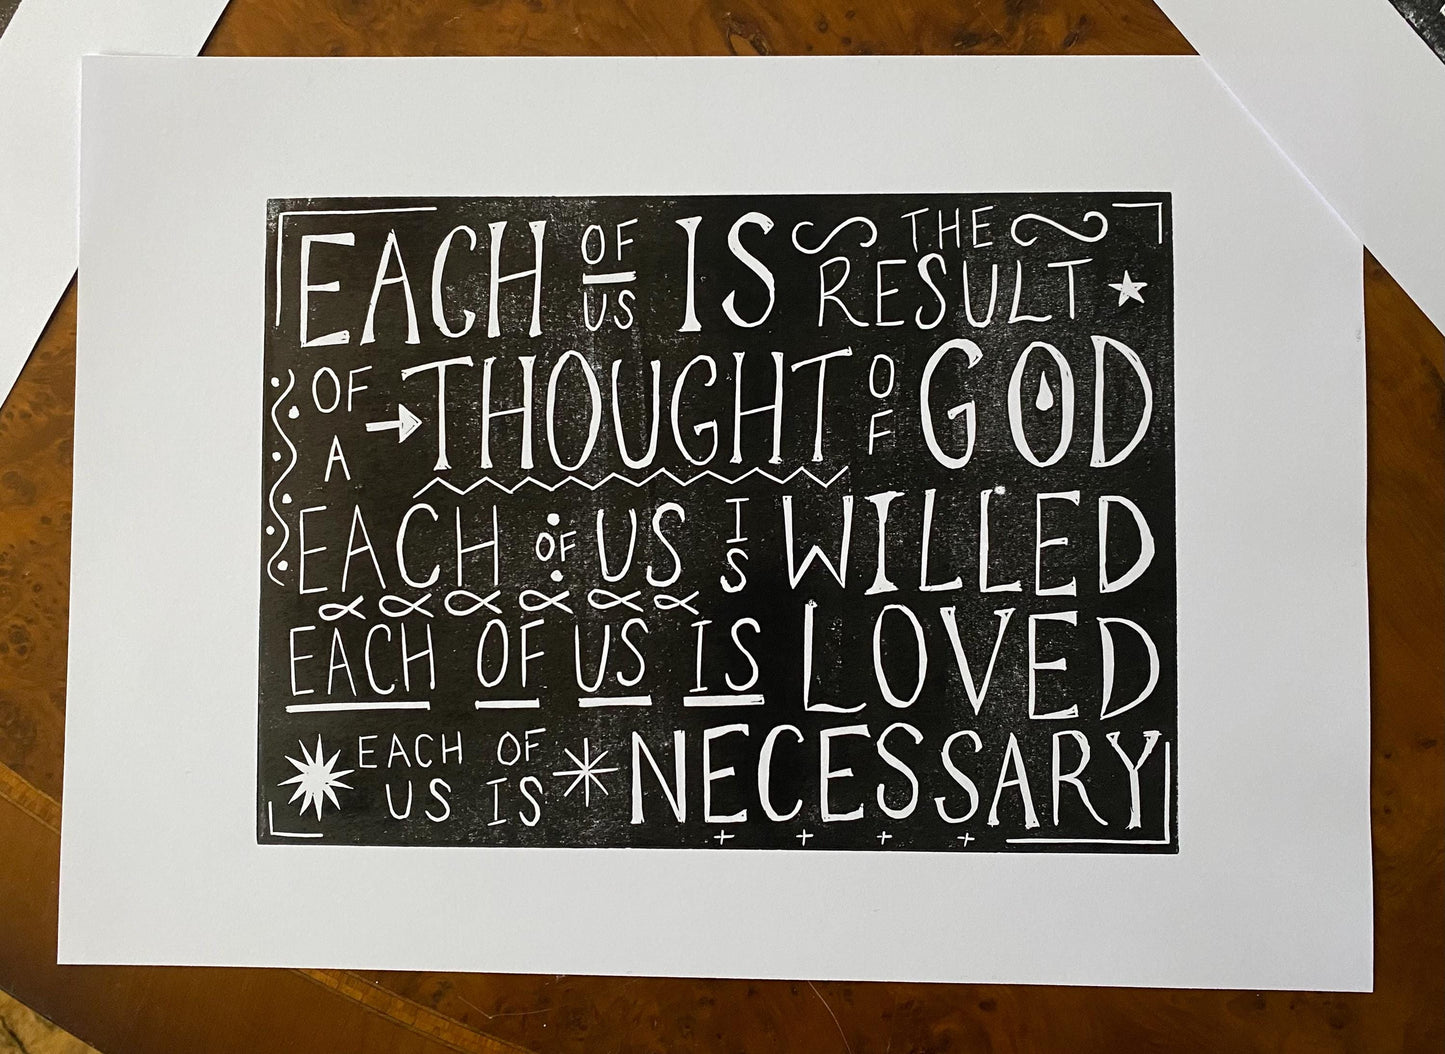 EACH OF US IS THE RESULT
OF A THOUGHT OF GOD
EACH OF US IS WILLED
EACH OF US IS LOVED
EACH OF US IS NECESSARY